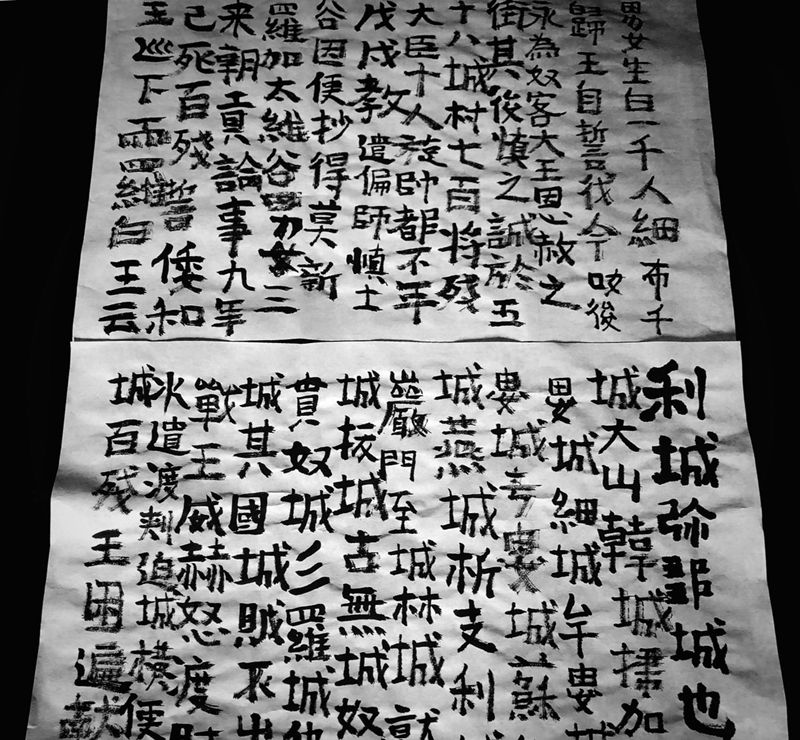 男女生白一千人細布千
歸王自誓伐今㕥後
永為奴客大王恩赦之
街其後慎之誠於五
十八城村七百將残
大臣十人旋師都不年
戊戌教遣偏師慎土
谷因便抄得莫新
羅加太維谷男女三
来朝貢論事九年
己死百残誓倭和
王巡下羅維白王云
利城弥鄒城也
城大山韓城掃加
婁城細城牟婁城
婁城亐婁城蘇
城燕城析支利
巖門至城林城就
城拔城古無城奴
貫奴城彡羅城
城其國城賊不出
戰王威赫怒度
水遣渡刺迫城横便
城百残王困逼献